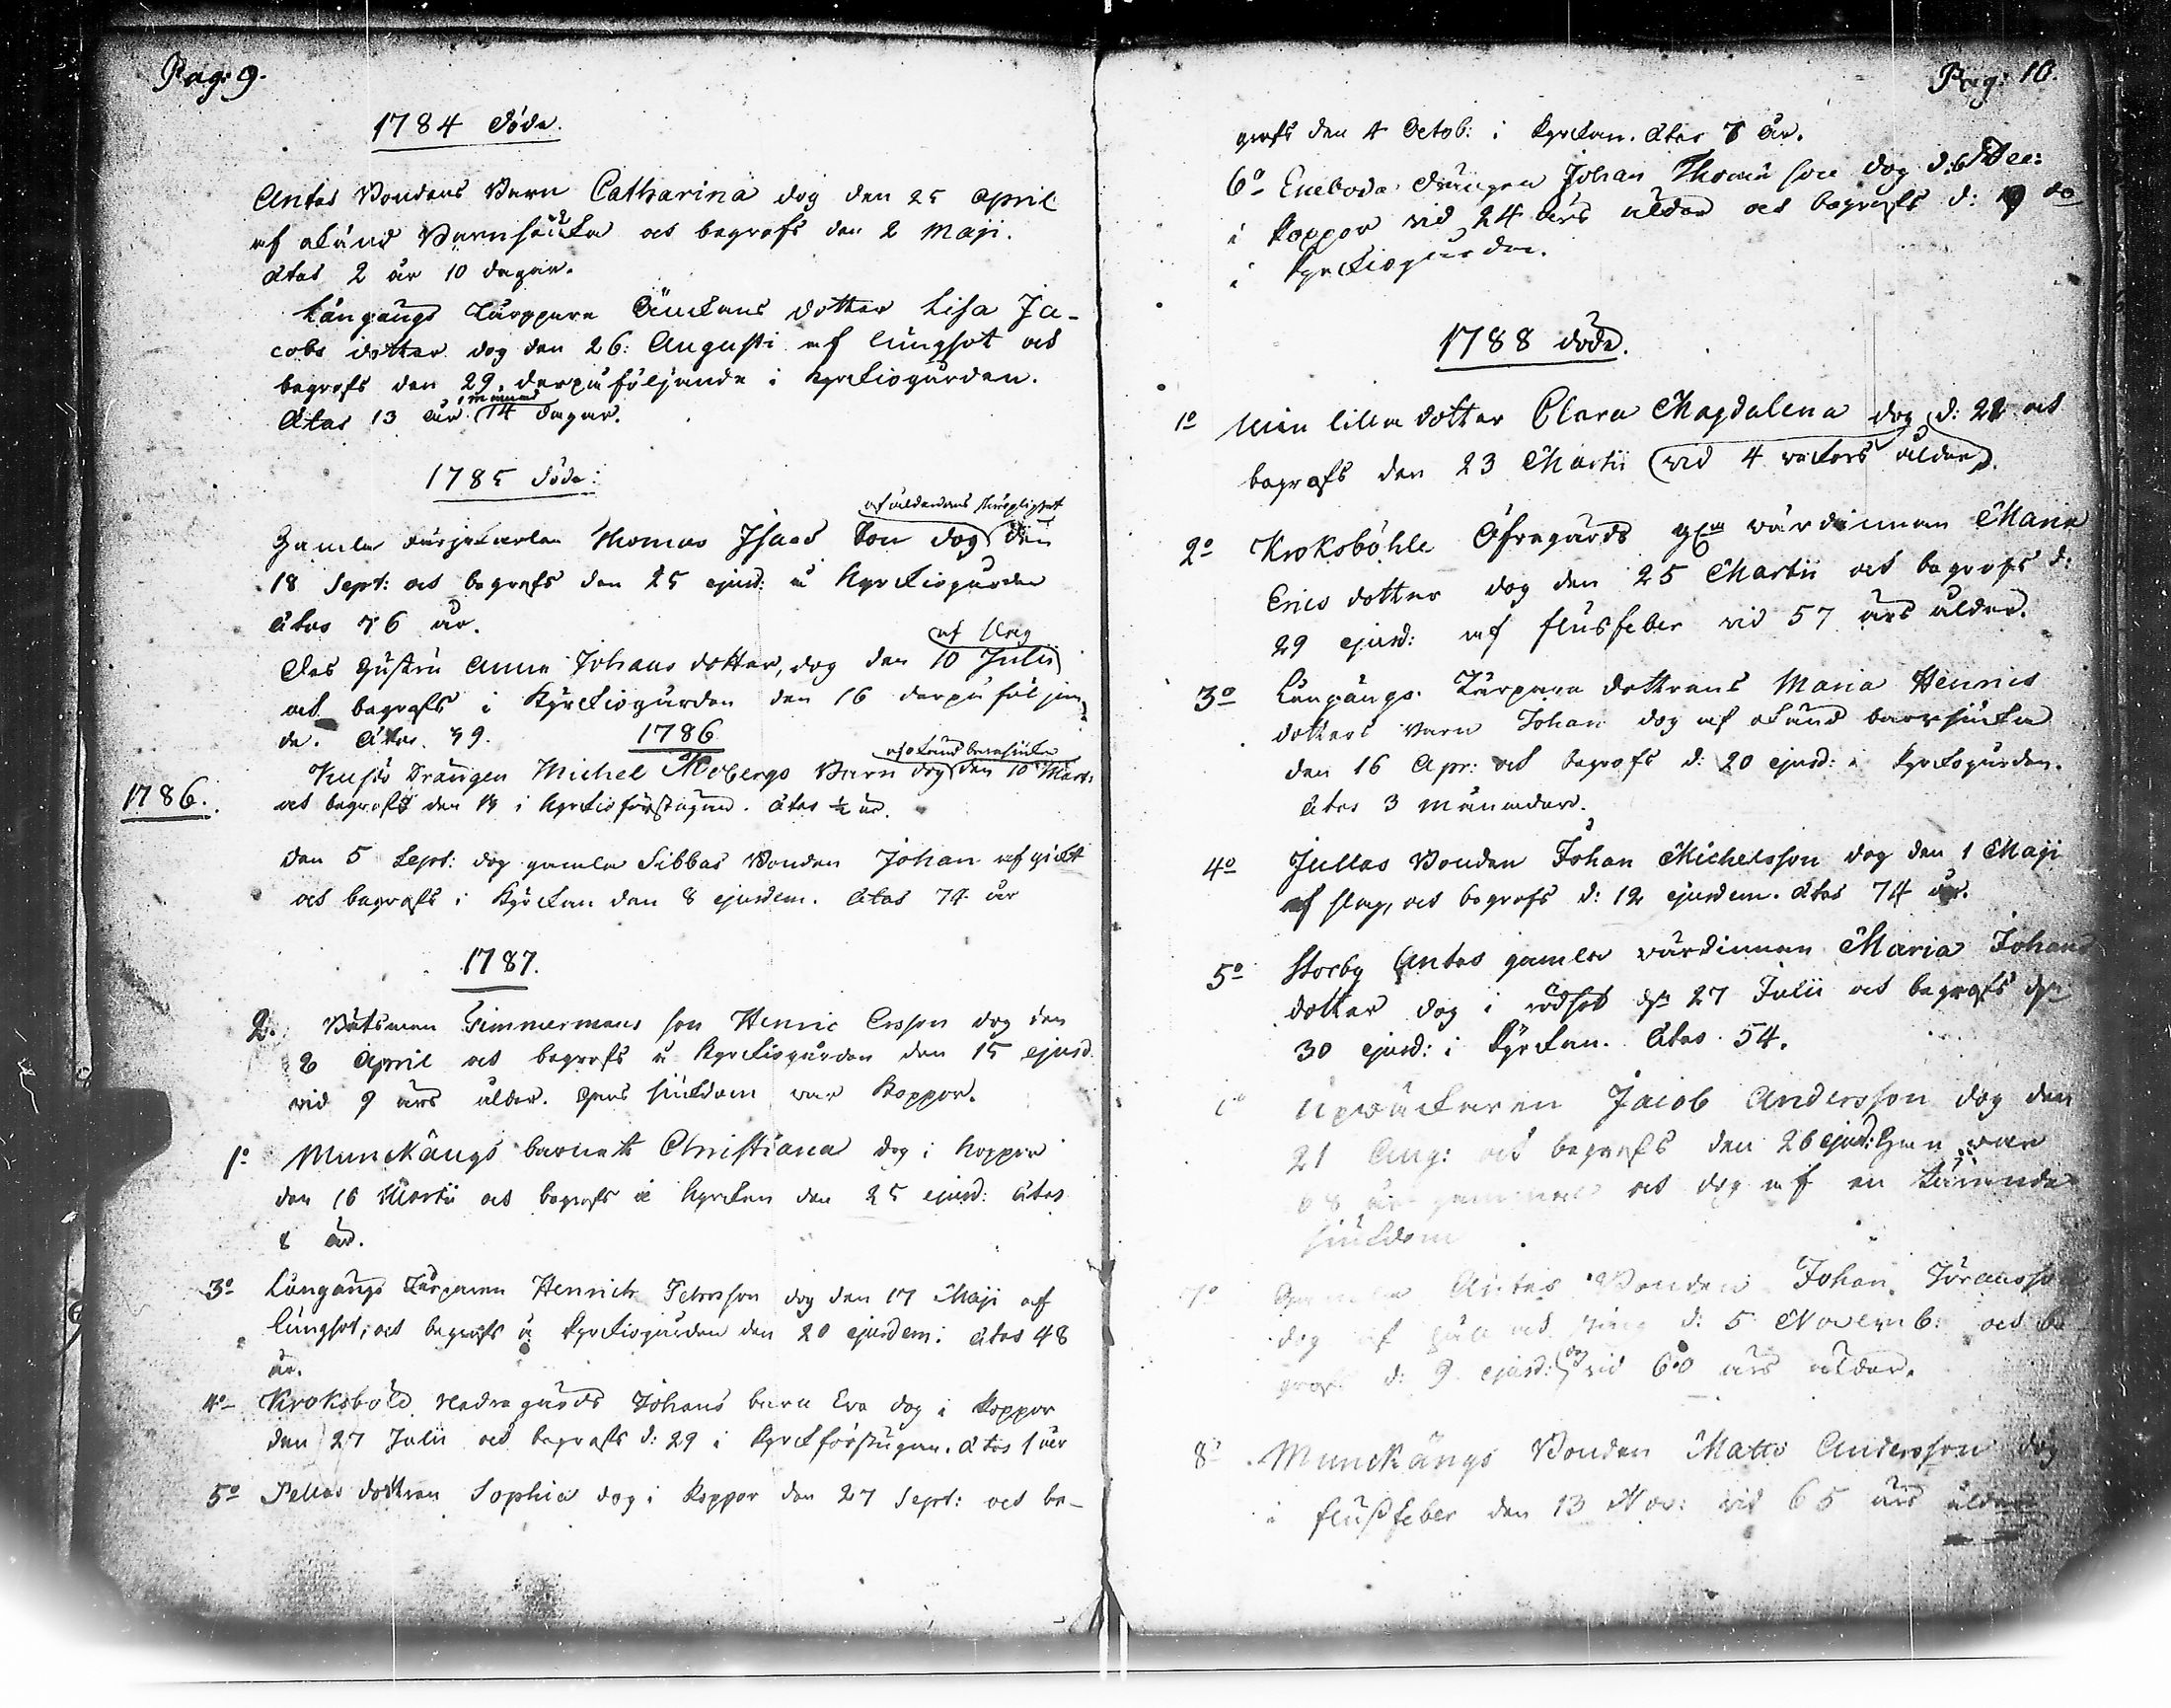 Pag: 9.
1784 döde.
Antes Bondens Barn Catharina dog den 25 April
af okänd Barnsiuka och begrofs den 2 Maji.
Ætas 2 år 10 dagar.
Långängs Torppare Änckans dotter Lisa Ja-
cobs dotter dog den 26: Augusti af lungsot och
begrofs den 29. derpå följande i Kyrckiogården.
Ætas 13 år 1 månad 14 dagar.
1785 döde:
af ålderdoms skröplighet
Gamla Thomas Isacs Son dog den
18 Sept: och begrofs den 25 ejusd: å Kyrckiogården
ætas 76 år.
af slag
Des Hustru Anna Johans dotter, dog den 10 Julii
och begrofs i Kyrckiogården den 16 derpå följan
de. Ætas. 79.
1786
af okänd barnsiuka
Drängen Michel Mobergs Barn dog den 10 Mart:
1786.
och begrofs den 19 i Kyrckioförstugun. Ætas ½ år.
den 5 Sept: dog gamla Sibbas Bonden Johan af gickt
och begrofs i Kyrckan den 8 ejusdem. Ætas 74 år
1787.
2. Båtsman Timmermans son Henric Ersson dog den
8 April och begrofs å Kyrckiogården den 15 ejusd.
vid 9 års ålder. Hans siukdom var Koppor.
1º Munckängs barnet Christiana dog i Koppor
den 16 Martii och begrofs i Kyrckan den 25 ejusd: ætas
8 år.
3º Långängs Torparen Henrich Petersson dog den 17 Maji af
lungsot; och begrofs å Kyrckiogården den 20 ejusdem: ætas 48
år.
4º Kroksböle Nedragårds Johans barn Eva dog i Koppor
den 27 Julii och begrofs d: 29 i Kyrckförstugun. ætas 1 år
5º Pellas dottren Sophia dog i Koppor den 27 Sept: och be-
Pag: 10.
grofs den 4 Octob: i Kyrckan. ætas 7 år.
6º Eneboda drängen Johan Thomæ son dog d: 6 Dec:
i Koppor vid 24 års ålder och begrofs d: 9 do
i Kyrckiogården.
1788 döde.
1º Min lilla dotter Clara Magdalena dog d: 22 och
begrofs den 23 Martii vid 4 veckors ålder.
2º Kroksböhle Öfregårds gla värdinnan Maria
Erics dotter dog den 25 Martii och begrofs d:
29 ejusd: af flusfeber vid 57 års ålder.
3º Långängs Torpare dottrens Maria Henrics
dotters barn Johan dog af okänd barnsiuka
den 16 Apr: och begrofs d: 20 ejusd: i Kyrckogården.
ætas 3 månader.
4º Jullas Bonden Johan Michelsson dog den 1 Maji
af slag, och begrofs d: 12 ejusdem. ætas 74 år.
5º Storby Antes gamla värdinnan Maria Johans
dotter dog i rödsot den 27 Julii och begrofs den
30 ejusd: i Kyrckan. ætas 54.
6º Jacob Andersson dog den
21 Aug: och begrofs den 26 ejusd: Han var
68 år gammal och dog af en tärande
siukdom
7º Gamla Antes Bonden Johan Göransson
dog af håll och sting d: 5 Novemb: och be
grofs d: 9 ejusd: vid 60 års ålder.
8º Munckängs Bonden Matts Andersson dog
i flußfeber den 13 Nov: vid 65 års ålder